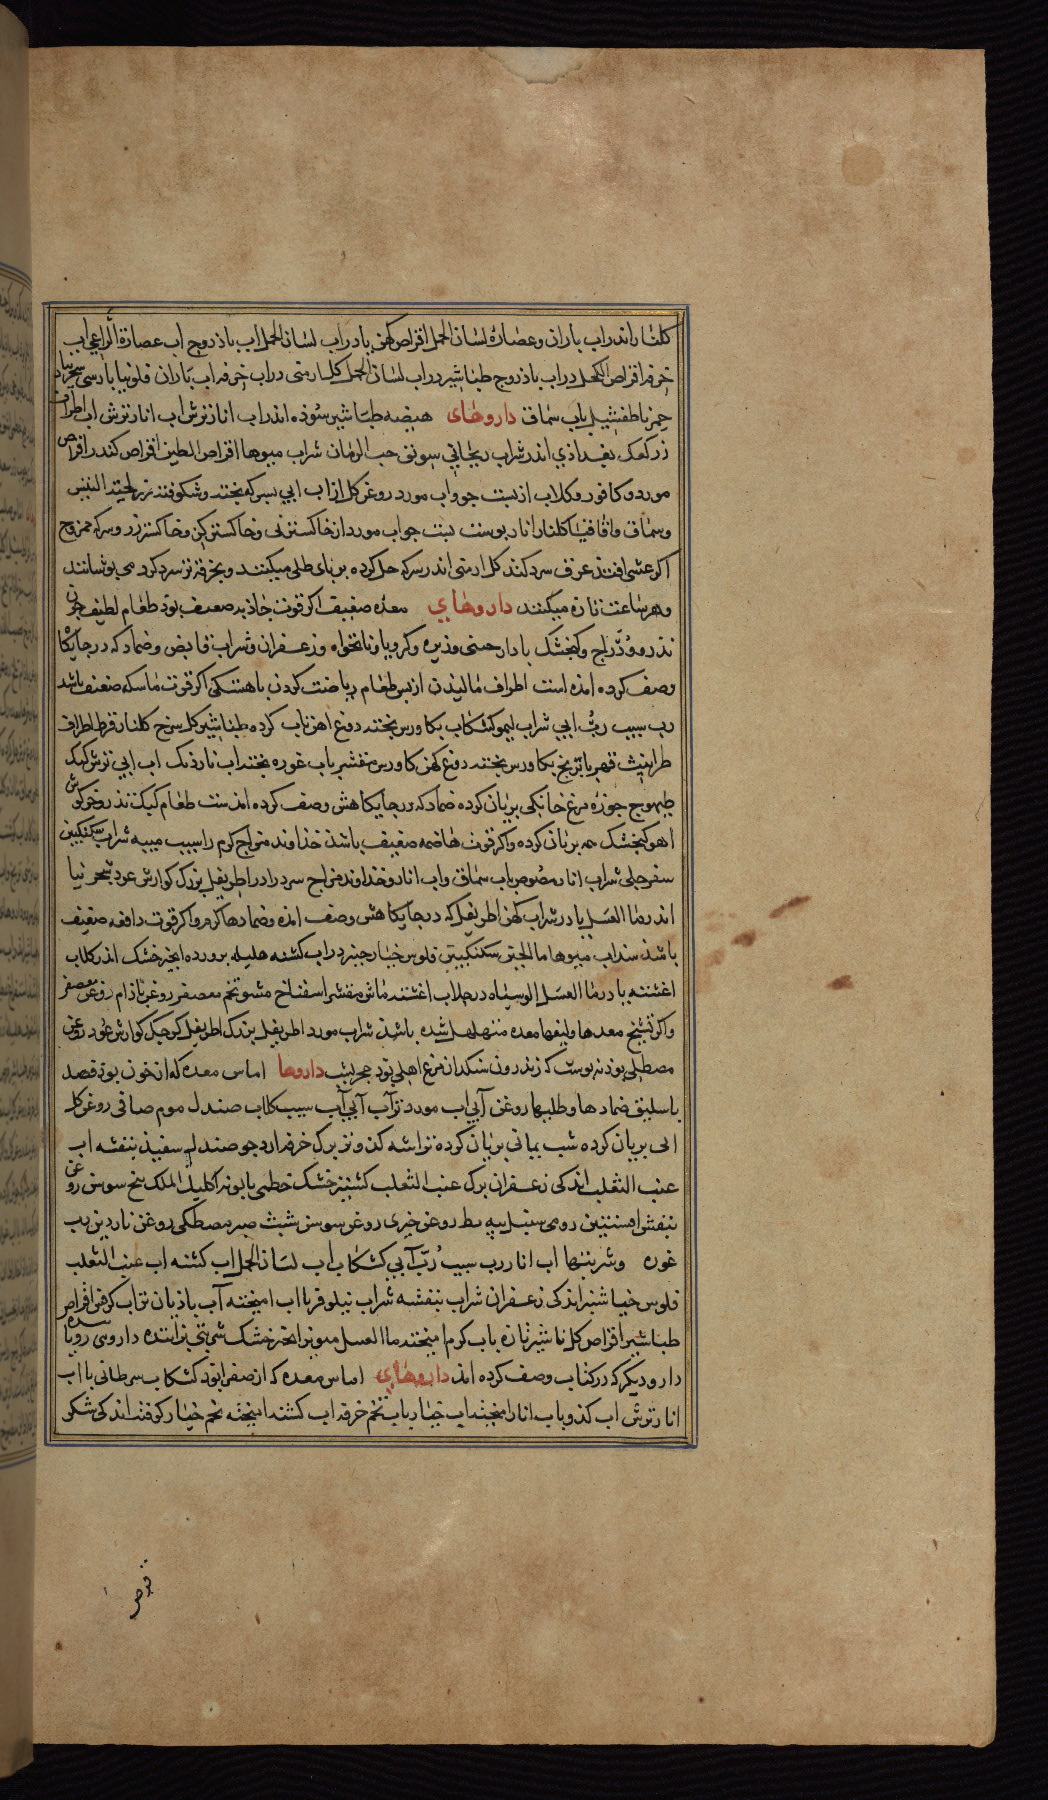 کلنار اندر اب باران و عصاره لسان الحمل اقراص کهن یا در اب لسان الحمل اب باذروج اب عصارة الراعی اب
خرفه اقراص الکحل در اب باذروج طباشیر در اب لسان الحمل کل ارمنی در اب خرفه اب باران فلونیا بارسی
سماق داروهای هیضه طباشیر سوده اندر اب انار ترش اب انار ترش اب اطراف
زر کعک بغدادی اندر شراب ریحانی سویق حب الرمان شراب میوها اقراص الطین اقراص کندر اقراص
مورد و کافور و کلاب از بست جو و اب مورد روغن کل از اب ابی بسرکه بختند و شکوفه لحیة التیس
و سماق و اقاقیا کلنار انار بوست بست جو اب مورد از خاکستر نی و خاکستر کن و خاکستر رز و سرکه ممزوج
اکر غشی افتد عرق سرد کند کل ارمنی اندر سرکه حل کرده بر بای طلی میکنند و بخرقه تر سرد کرده می بوشانند
و هر ساعت تازه میکنند داروهای معده ضعیف اکر قوت جاذبه ضعیف بود طعام لطیف چون
تذرو و دراج و کنجشک با دارجینی و زیره و کرویا و نانخواه و زعفران و شراب قابض و ضماد که در جایکا
وصف کرده امده است اطراف مالیدن از بس طعام ریاضت کردن باهستکی اکر قوت ماسکه ضعیف باشد
رب سیب رب ابی شراب لیمو کشکاب بکاورس بخته دوغ اهن تاب کرده طباشیر کل سرخ کلنار قرط اطراف
طراثیث بکاورس بخته دوغ کهن کاورس مقشر باب غوره بخته اب نار دنک اب ابی ترش کبک
طیهوج جوزه مرغ خانکی بریان کرده ضماد که در جایکاهش وصف کرده امدست طعام کبک تذرو خرکوش
اهو کنجشک همه بریان کرده و اکر قوت هاضمه ضعیف باشد خداوند مزاج کرم را سیب میبه شراب سکنکبین
سفرجلی شراب انار مصوص باب سماق و اب انار و خداوند مزاج سرد را در اطریفل بزرک کوارش عود شجرنیا
اندر ما العسل یا در شراب کهن اطریفل که در جایکاهش وصف امده و ضمادها کرم و اکر قوت دافعه ضعیف
باشد شراب میوها ما الجبن سکنکبین فلوس خیار جنبر در اب کشنه هلیله برورده انجیر خشک اندر کلاب
اغشته یا در ما العسل الو سیاه در جلاب اغشته ماش مقشر اسفناخ مشو تخم معصفر روغن باذام روغن معصفر
و اکر تشنج معدها و لیفها معده متهلهل شده باشد شراب مورد اطریفل بزرک اطریفل کوجک کوارش عود روغن
مصطکی بودنه بوست که اندرون سنکدان مرغ اهلی بود داروها اماس معده که از خون بود فصد
باسلیق ضمادها و طلیها روغن آبی اب مورد تر آب آبی آب سیب کلاب صندل موم صافی روغن کل
ابی بریان کرده شب یمانی بریان کرده تراشه کدو تر برک خرفه ارد جو صندل سفیذ بنفشه اب
عنب الثعلب اندکی زعفران برک عنب الثعلب کشنیز خشک خطمی بابونه اکلیل الملک بیخ سوسن روغن
بنفشه افسنتین رومی سنبل بیه بط روغن خیری روغن سوسن شبث صبر مصطکی روغن ناردین رب
غوره و شربتها اب انار رب سیب رب آبی کشکاب اب لسان الحمل اب کشنه اب عنب الثعلب
فلوس خیار شنبر اندکی زعفران شراب بنفشه شراب نیلوفر با اب امیخته آب باذیان تر اب کرفس اقراص
طباشیر اقراص کل تازه باب کرم امیخته ما العسل مویز انجیر خشک داروی
دارو دیکر که در کتاب وصف کرده اند داروهای اماس معده که از صفرا بود کشکاب سرطانی با اب
انار ترش اب کدو باب انار امیخته اب خیار باب تخم خرفه اب کشنه امیخته تخم خیار کوفته اندکی شکر
قرص